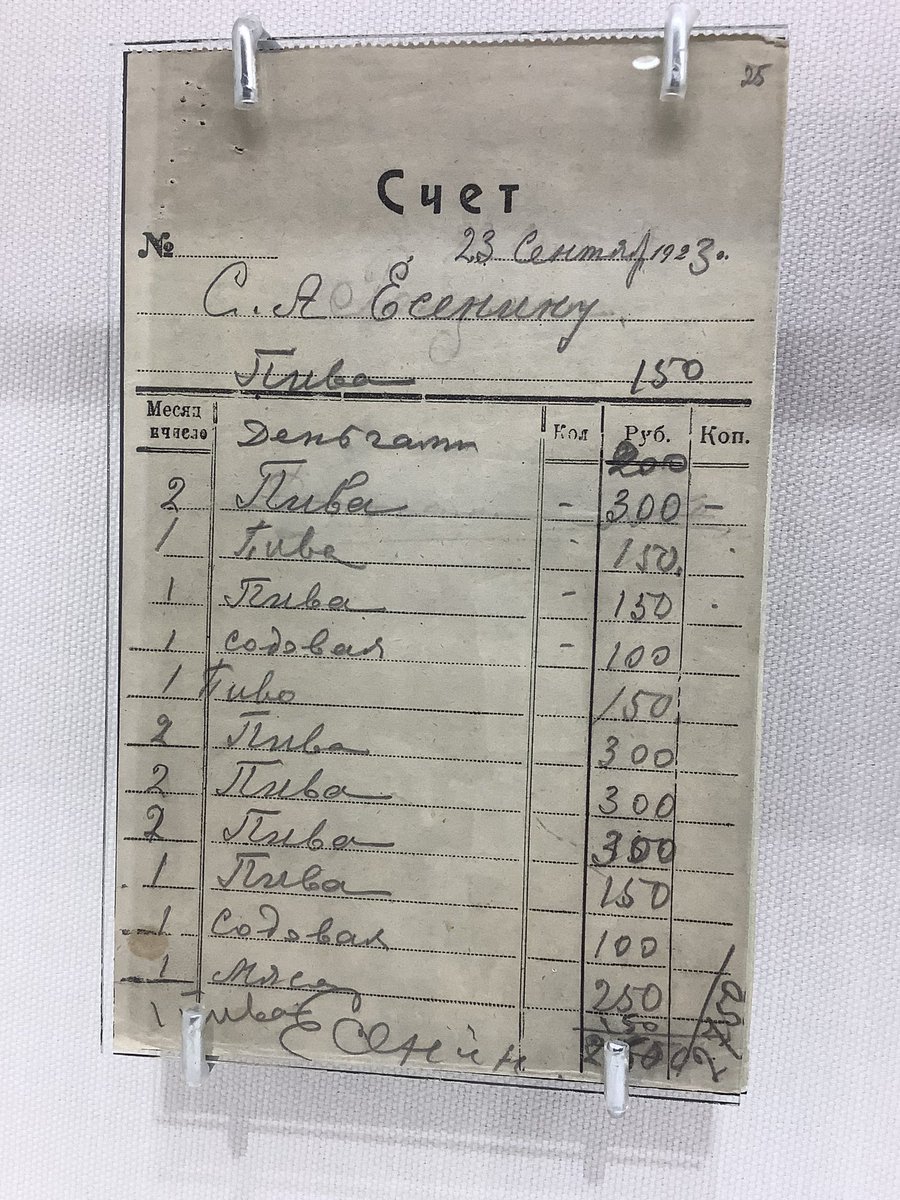 25
Счет
№ 23 Сентяб 1923 г.
С. А Есенину
Пива 150
Месяц и число Деньгами Кол Руб. Коп.
200
2 Пива - 300 -
1 Пива - 150.
1 Пива - 150
1 содовая - 100
1 Пиво 150
2 Пива 300
2 Пива 300
2 Пива 300
1 Пива 150
1 Содовая 100
1 Мясо 250
1 Пиво 150
Есенин